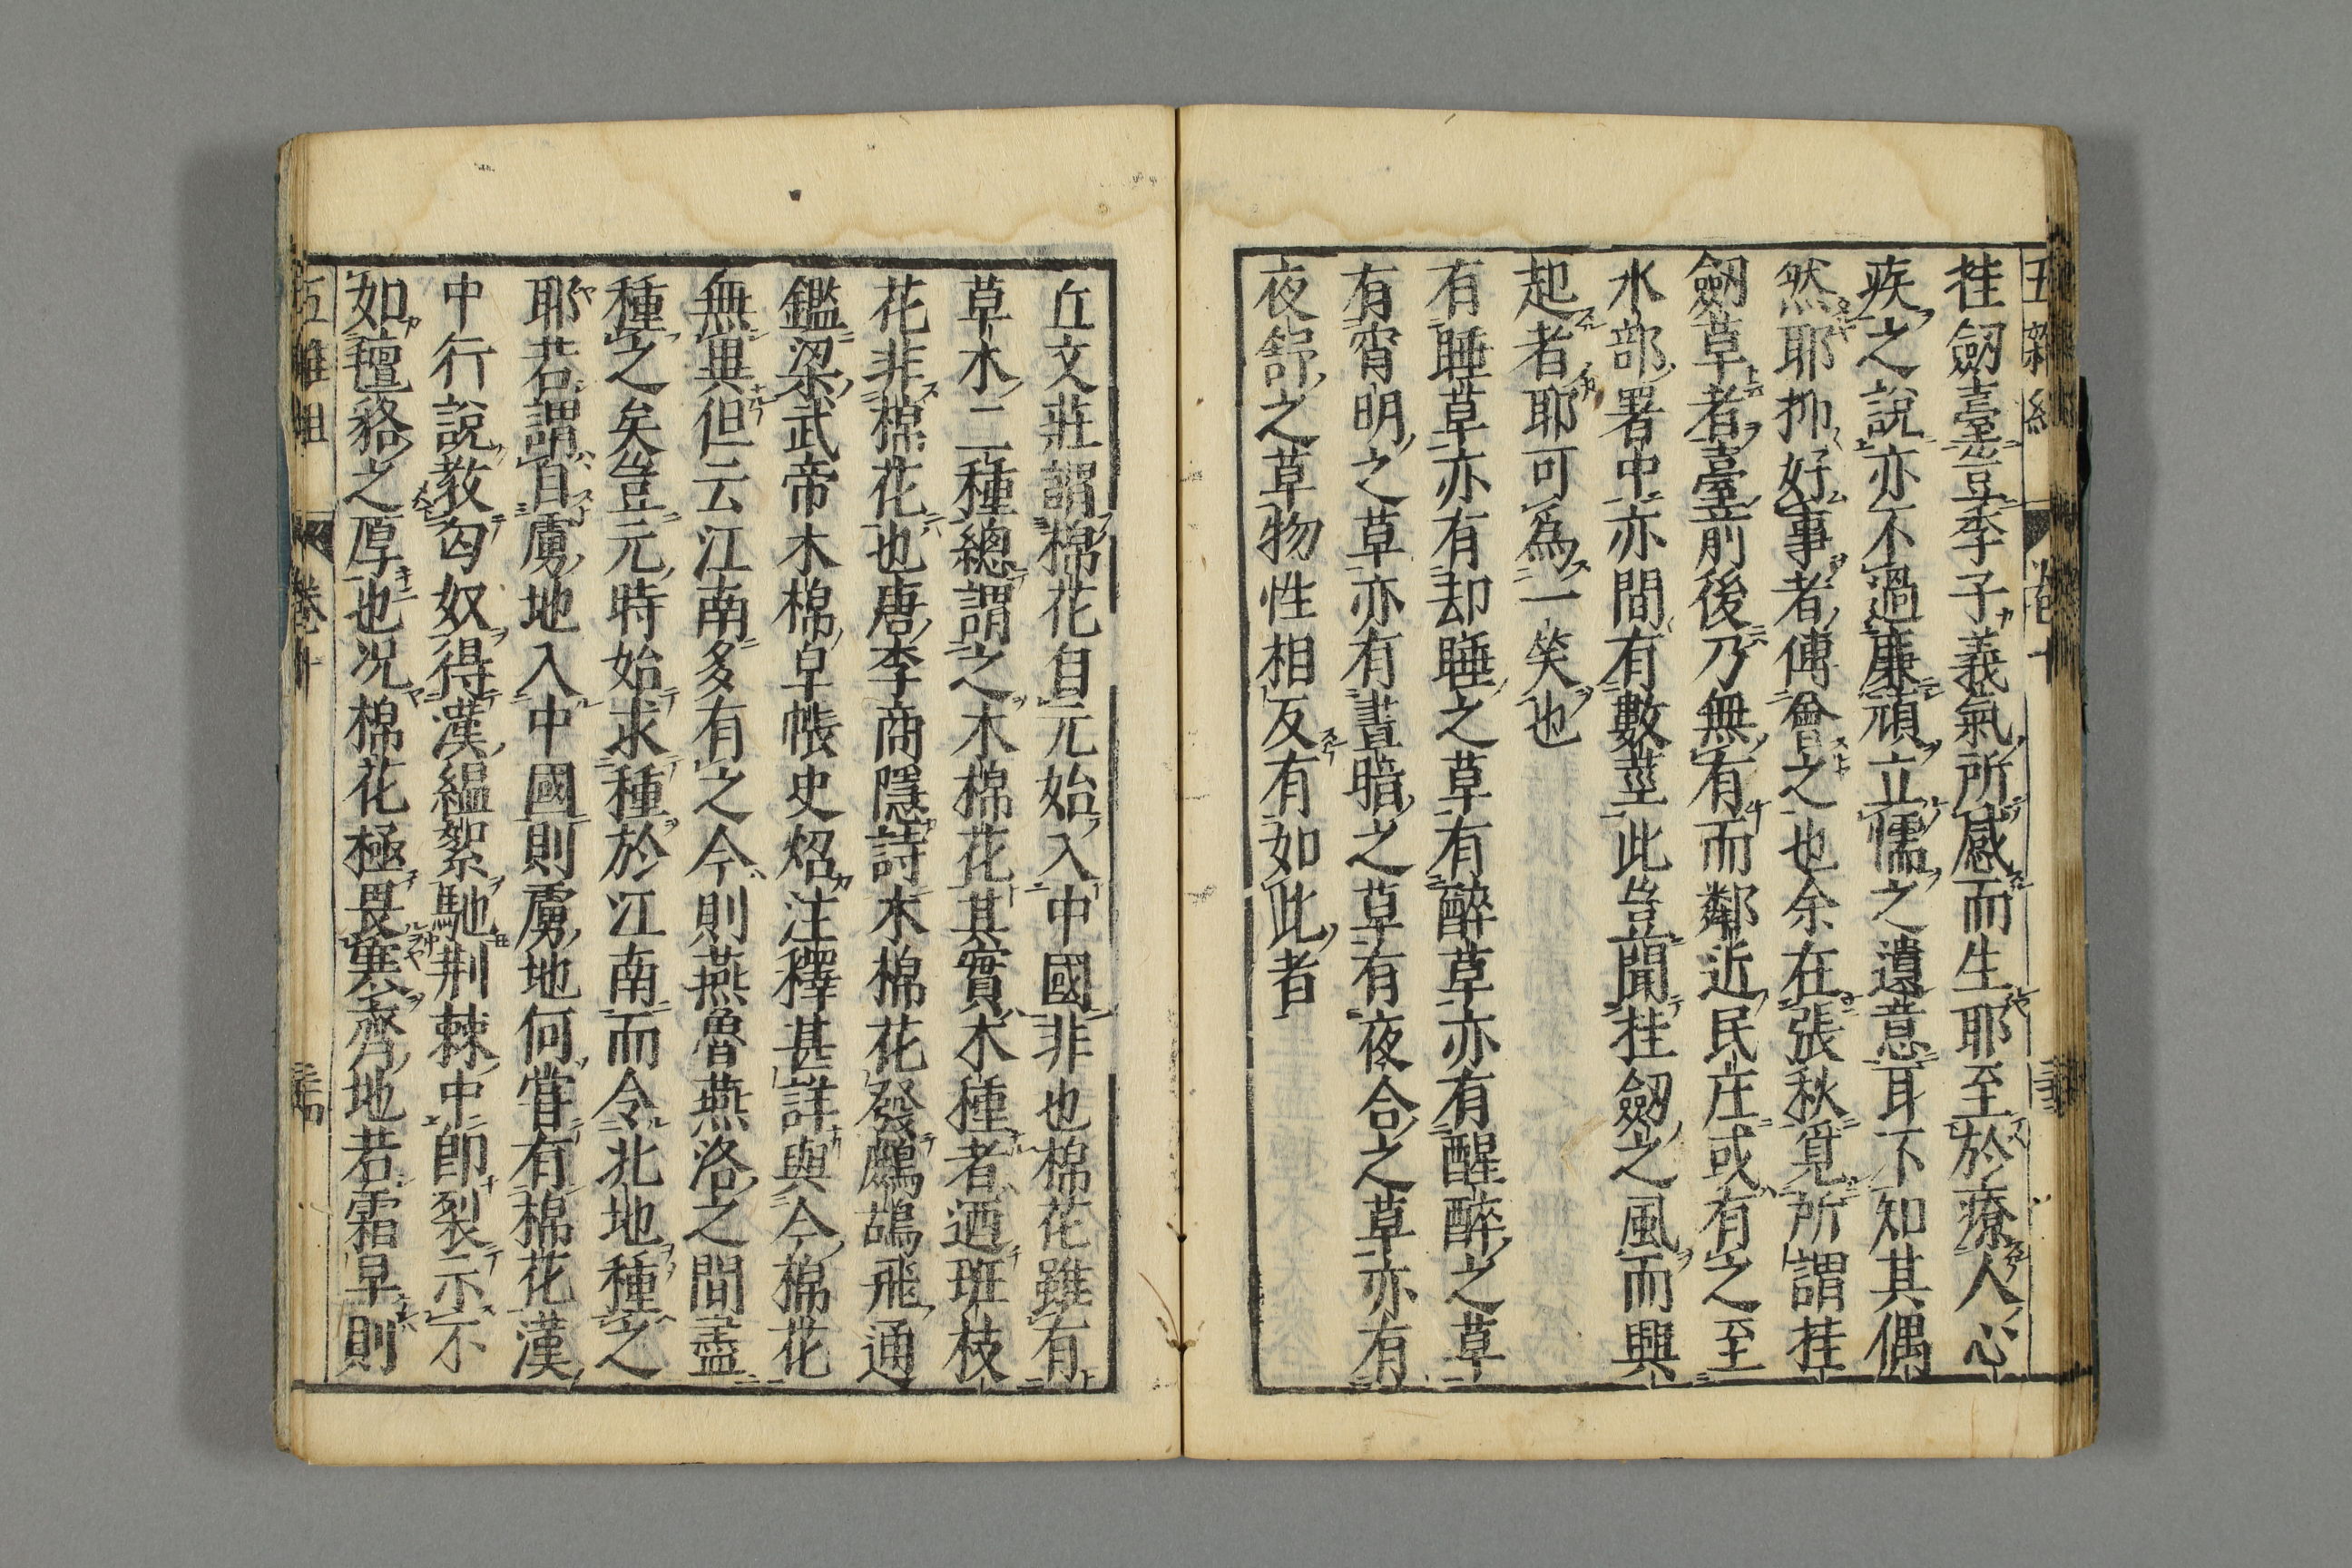 挂劒臺豈季子義氣所感而生耶至於療人心
疾之說亦不過廉頑立懦之遺意耳不知其偶
然耶抑好事者傅會之也余在張秋覓所謂挂
劒草者臺前後乃無有而鄰近民庄或有之至
水部署中亦間有數莖此豈聞挂劒之風而興
起者耶可為一笑也
有睡草亦有却睡之草有醉草亦有醒醉之草
有宵明之草亦有晝暗之草有夜合之草亦有
夜舒之草物性相反有如此者
丘文莊謂棉花自元始入中國非也棉花雖有
草木二種總謂之木棉花其實木種者迺班枝
花非棉花也唐李商隱詩木棉花發鷓鴣飛通
鑑梁武帝木棉皁帳史炤注釋甚詳與今棉花
無異但云江南多有之今則燕魯燕洛之間盡
種之矣豈元時始求種於江南而令北地種之
耶若謂自虜地入中國則虜地何嘗有棉花漢
中行說教匈奴得漢縕絮馳荆棘中即裂示不
如氊貉之厚也况棉花極畏寒齊地若霜早則
卷十